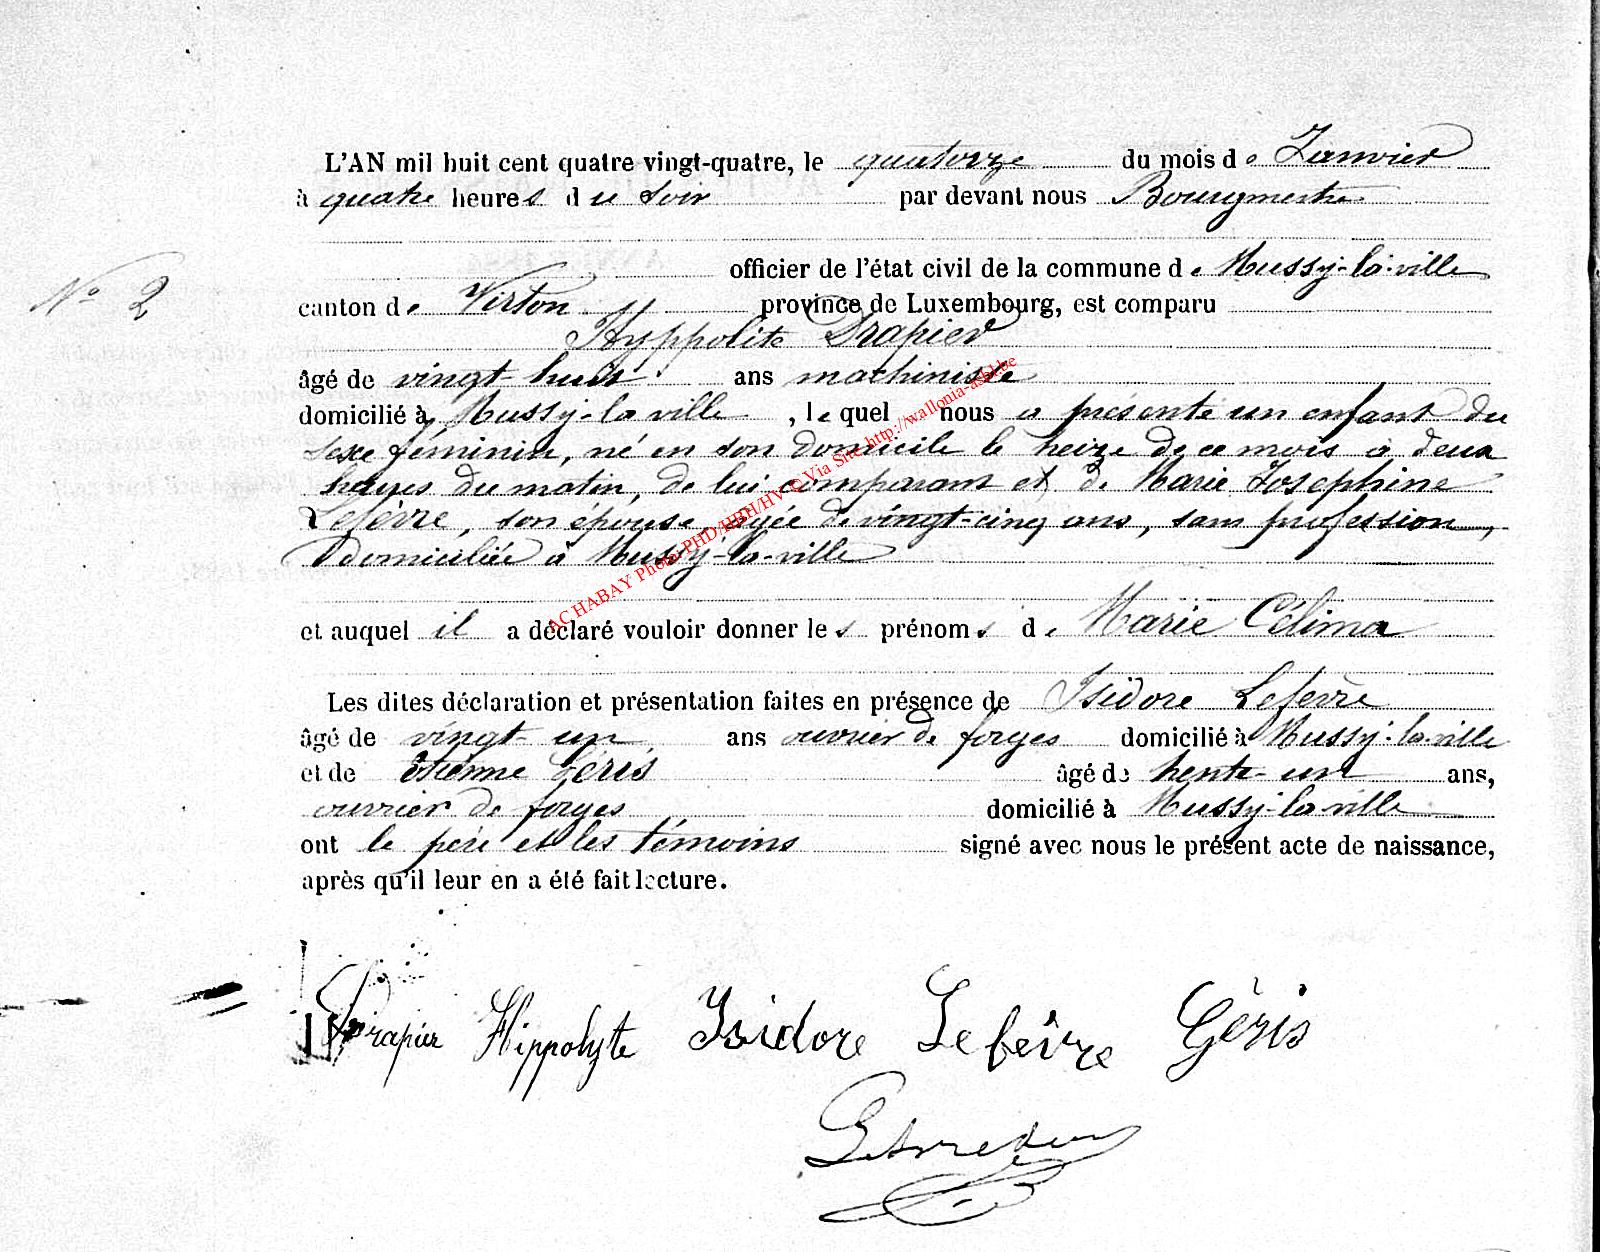 L'AN mil huit cent quatre vingt-quatre, le quatorze du mois de Janvier
à quatre heures du soir par devant nous Bourgmestre
officier de l'état civil de la commune de Mussy-la-ville
N° 2
canton de Virton province de Luxembourg, est comparu
Hyppolite Drapier
âgé de vingt-huit ans machiniste
domicilié à Mussy-la ville, lequel nous a présenté un enfant du
sexe féminin, né en son domicile le treize de ce mois à deux
heures du matin, de lui comparant et de Marie Josephine
Lefèvre, son épouse, agée de vingt-cinq ans, sans profession,
domiciliée à Mussy-la-ville
et auquel il a déclaré vouloir donner les prénoms de Marie Célima
Les dites déclaration et présentation faites en présence de Isidore Lefèvre
âgé de vingt-un ans ouvrier de forges domicilié à Mussy-la-ville
et de Etienne Géris âgé de trente-un ans,
ouvrier de forges domicilié à Mussy-la ville
ont le père et les témoins signé avec nous le présent acte de naissance,
après qu'il leur en a été fait lecture.
Drapier Hippolyte Isidore Lefèvre Géris
AC HABAY Photo PHD/HBH/HV © Via Site http://wallonia-asbl.be